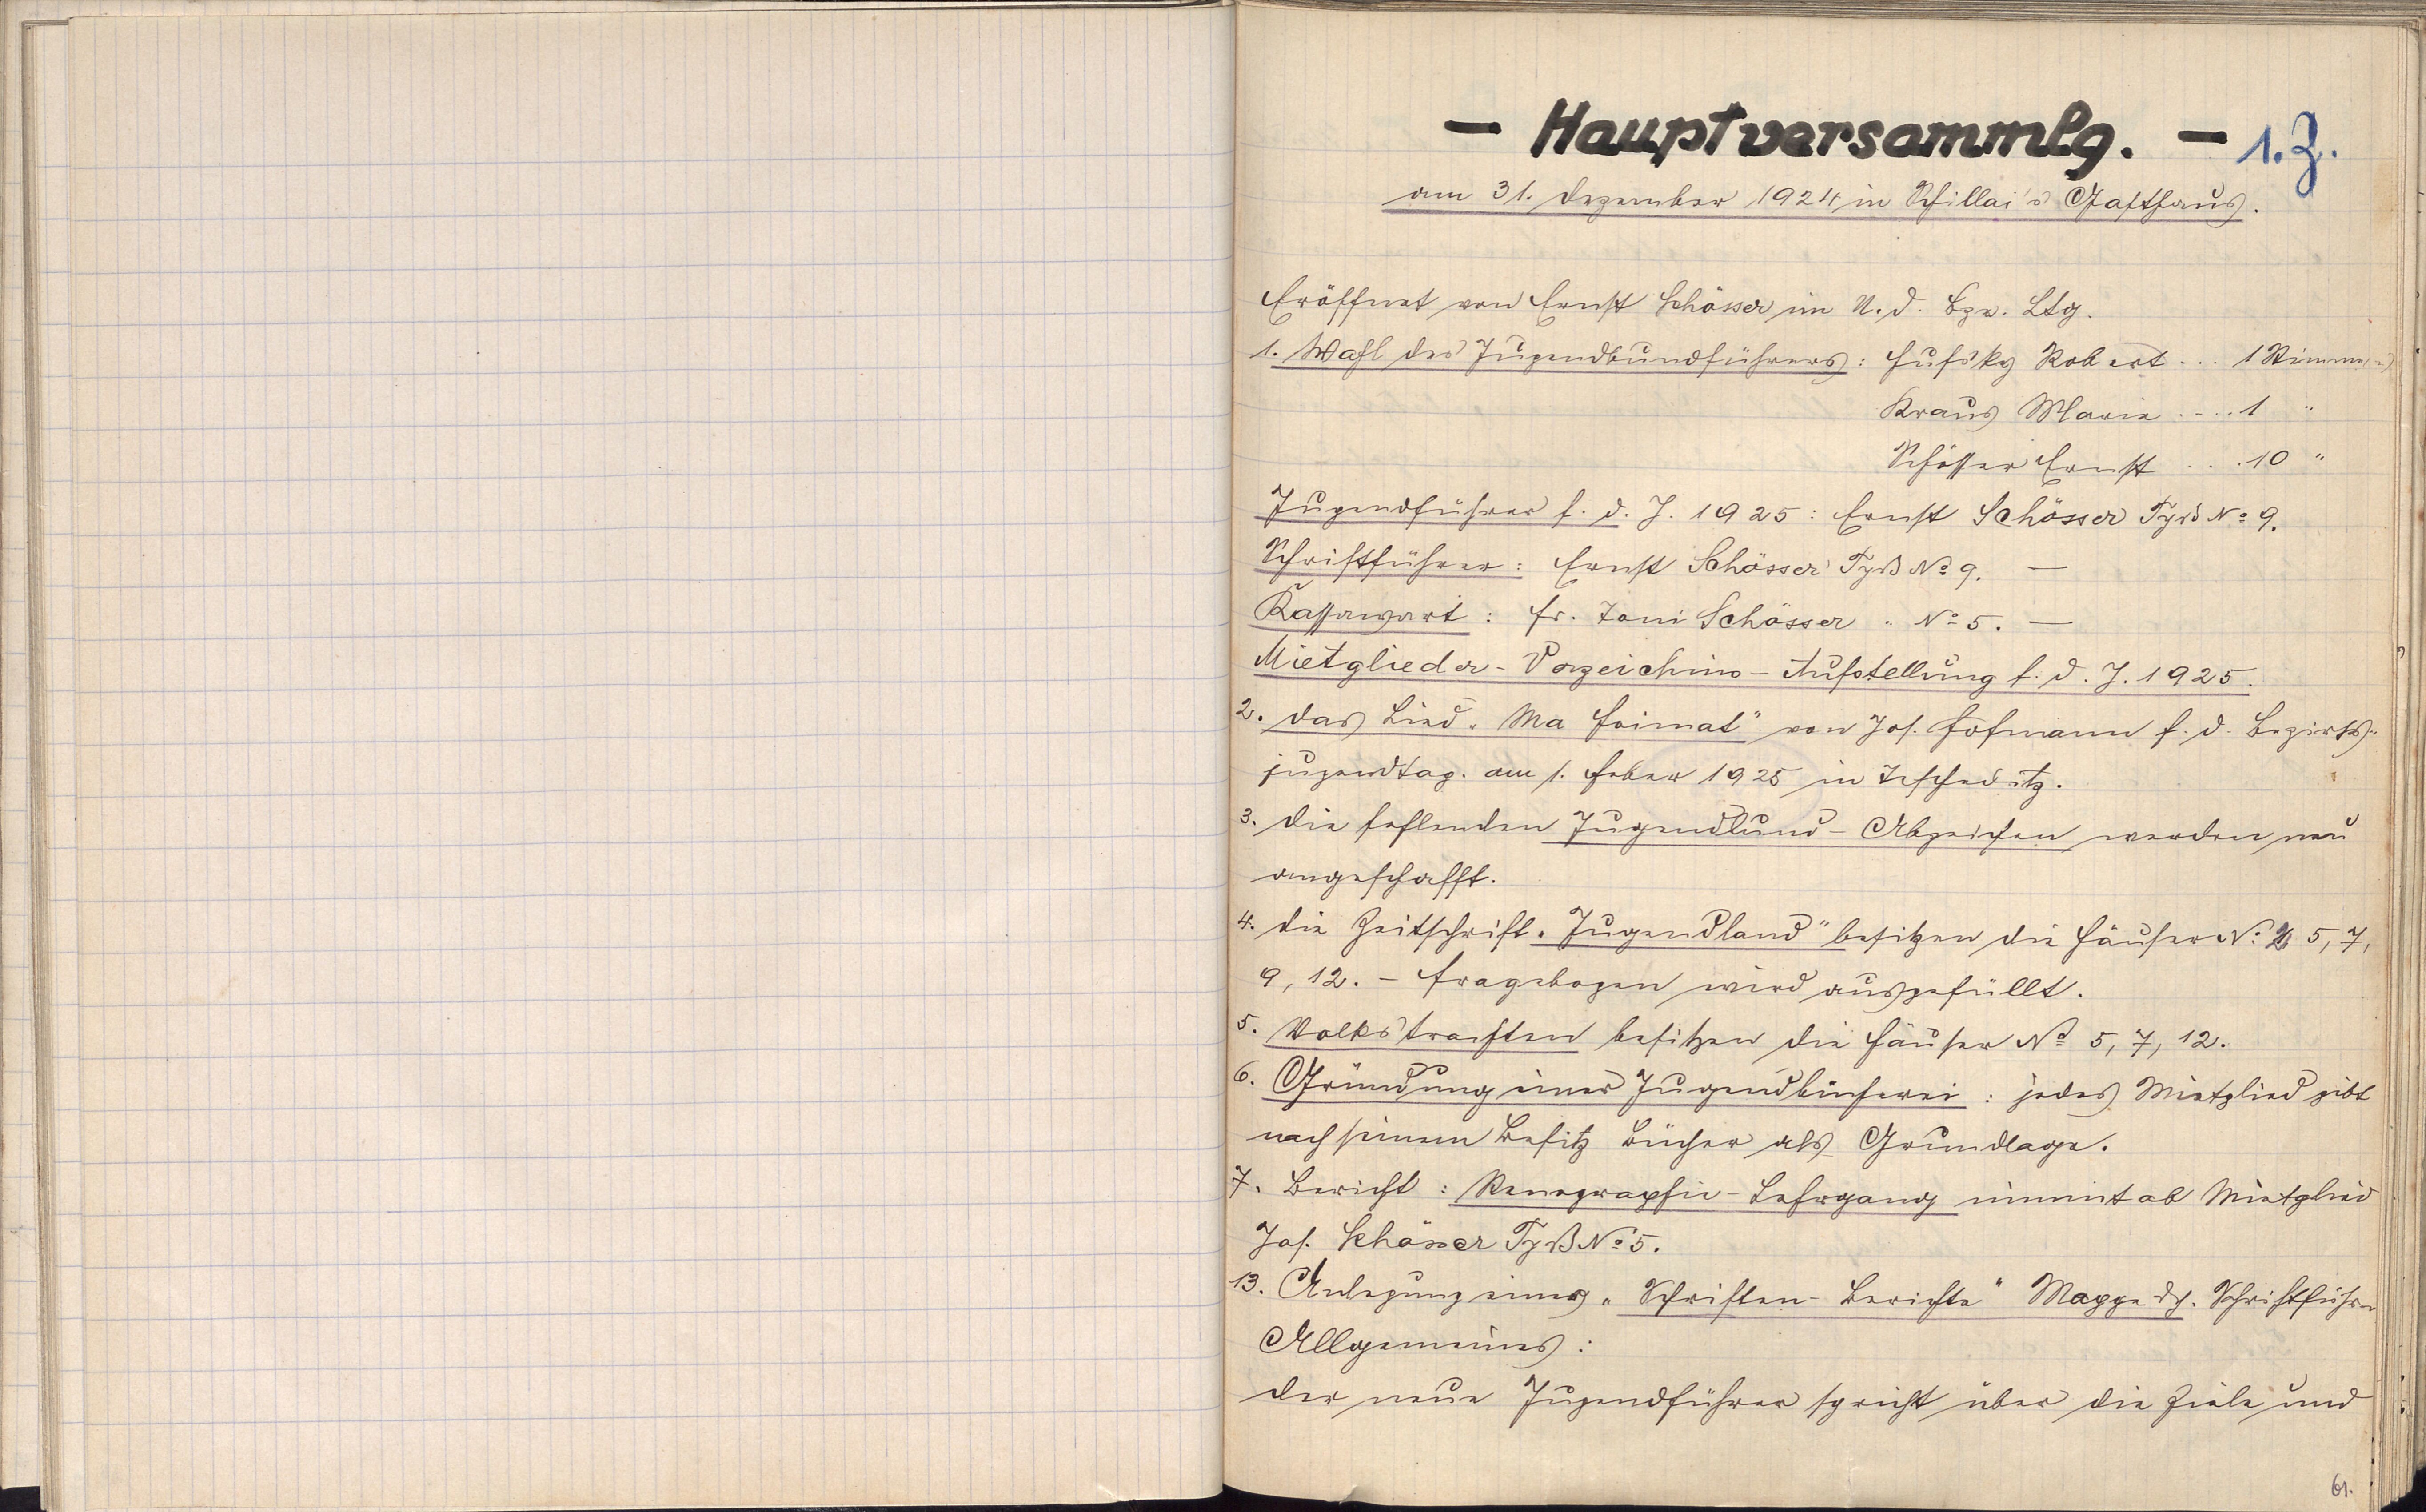 - Hauptversammlg. - 1. Z.
am 31. Dezember 1924 in Schillai's Gasthaus.
Eröffnet von Ernst Schösser im N. d. Bze. Ltg.
1. Wahl des Jugendbundführers: Hufsky Robert ... 1 Stimme
Kraus Marie .... 1 "
Schösser Ernst ... 10 "
Jugendführer f. d. J. 1925: Ernst Schösser Tyß No 9.
Schriftführer: Ernst Schösser Tyß No 9. —
Kassawart: Frl. Toni Schösser " No 5. —
Mietglieder-Verzeichnis-Aufstellung f. d. J. 1925.
2. Das Lied „Ma Heimat" von Jos. Hofmann f. d. Bezirks-
jugendtag. am 1. Feber 1925 in Tescheditz.
3. Die fehlenden Jugendbund-Abzeichen werden neu
angeschafft.
4. Die Zeitschrift „Jugendland" besitzen die Häuser No 5, 7,
9, 12. - Fragebogen wird ausgefüllt.
5. Volkstrachten besitzen die Häuser No 5, 7, 12.
6. Gründung einer Jugendbücherei: jedes Mietglied gibt
nach seinem Besitz Bücher als Grundlage.
7. Bericht: Stenographie-Lehrgang nimmt ab Mietglied
Jos. Schösser Tyß No 5.
13. Anlegung einer „Schriften-Berichte" Mappe dch. Schriftführer
Allgemeines:
Der neue Jugendführer spricht über die Ziele und
61.